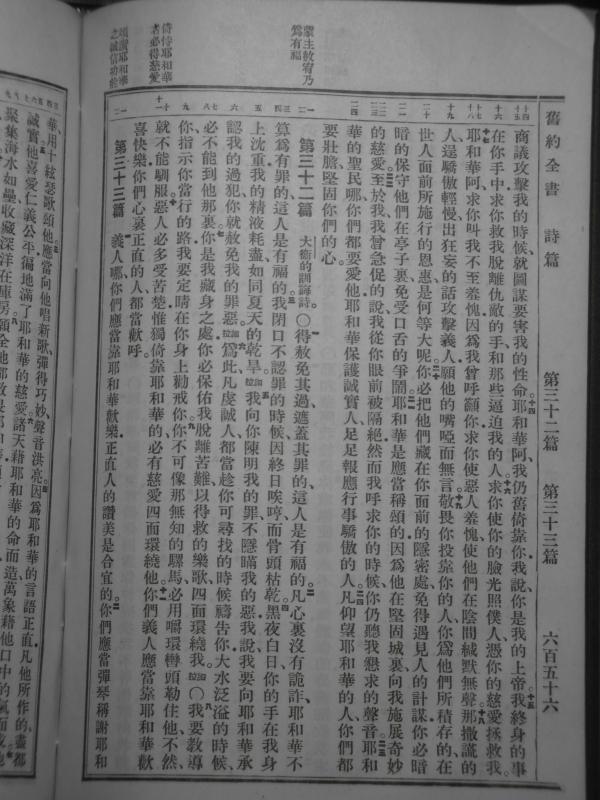 舊約全書 詩篇 第三十二篇 第三十三篇 六百五十六
商議攻擊我的時候就圖謀要害我的性命耶和華阿我仍舊倚靠你我說你是我的上帝我終身的事
在你手中求你救我脫離仇敵的手和那些逼迫我的人求你使你的臉光照僕人憑你的慈愛拯救我
耶和華阿求你叫我不至羞愧因爲我曾呼籲你求你使惡人羞愧使他們在陰間緘默無聲那撒謊的
人逞驕傲輕慢出狂妄的話攻擊義人願他的嘴啞而無言敬畏你投靠你的人你爲他們所積存的在
世人面前所施行的恩惠是何等大呢你必把他們藏在你面前的隱密處免得遇見人的計謀你必暗
暗的保守他們在亭子裏免受口舌的爭鬧耶和華是應當稱頌的因爲他在堅固城裏向我施展奇妙
的慈愛至於我我曾急促的說我從你眼前被隔絕然而我呼求你的時候你仍聽我懇求的聲音耶和
華的聖民哪你們都要愛他耶和華保護誠實人足足報應行事驕傲的人凡仰望耶和華的人你們都
要壯膽堅固你們的心
蒙主赦宥乃
爲有福
第三十二篇 大衞的訓誨詩○得赦免其過遮蓋其罪的這人是有福的凡心裏沒有詭詐耶和華不
算爲有罪的這人是有福的我閉口不認罪的時候因終日唉哼而骨頭枯乾黑夜白日你的手在我身
上沈重我的精液耗盡如同夏天的乾旱我向你陳明我的罪不隱瞞我的惡我說我要向耶和華承
認我的過犯你就赦免我的罪惡爲此凡虔誠人都當趁你可尋找的時候禱告你大水泛溢的時候
必不能到他那裏你是我藏身之處你必保佑我脫離苦難以得救的樂歌四面環繞我○我要教導
你指示你當行的路我要定睛在你身上勸戒你你不可像那無知的騾馬必用嚼環轡頭勒住他不然
就不能馴服惡人必多受苦楚惟獨倚靠耶和華的必有慈愛四面環繞他你們義人應當靠耶和華歡
喜快樂你們心裏正直的人都當歡呼
倚恃耶和華
者必得慈愛
頌讚耶和華
之誠信功能
第三十三篇 義人哪你們應當靠耶和華歡樂正直人的讚美是合宜的你們應當彈琴稱謝耶和
華用十絃瑟歌頌他應當向他唱新歌彈得巧妙聲音洪亮因爲耶和華的言語正直凡他所作的盡都
誠實他喜愛仁義公平徧地滿了耶和華的慈愛諸天藉耶和華的命而造萬象藉他口中的氣而成他
聚集海水如壘收藏深洋在庫房願全地都敬畏耶和華